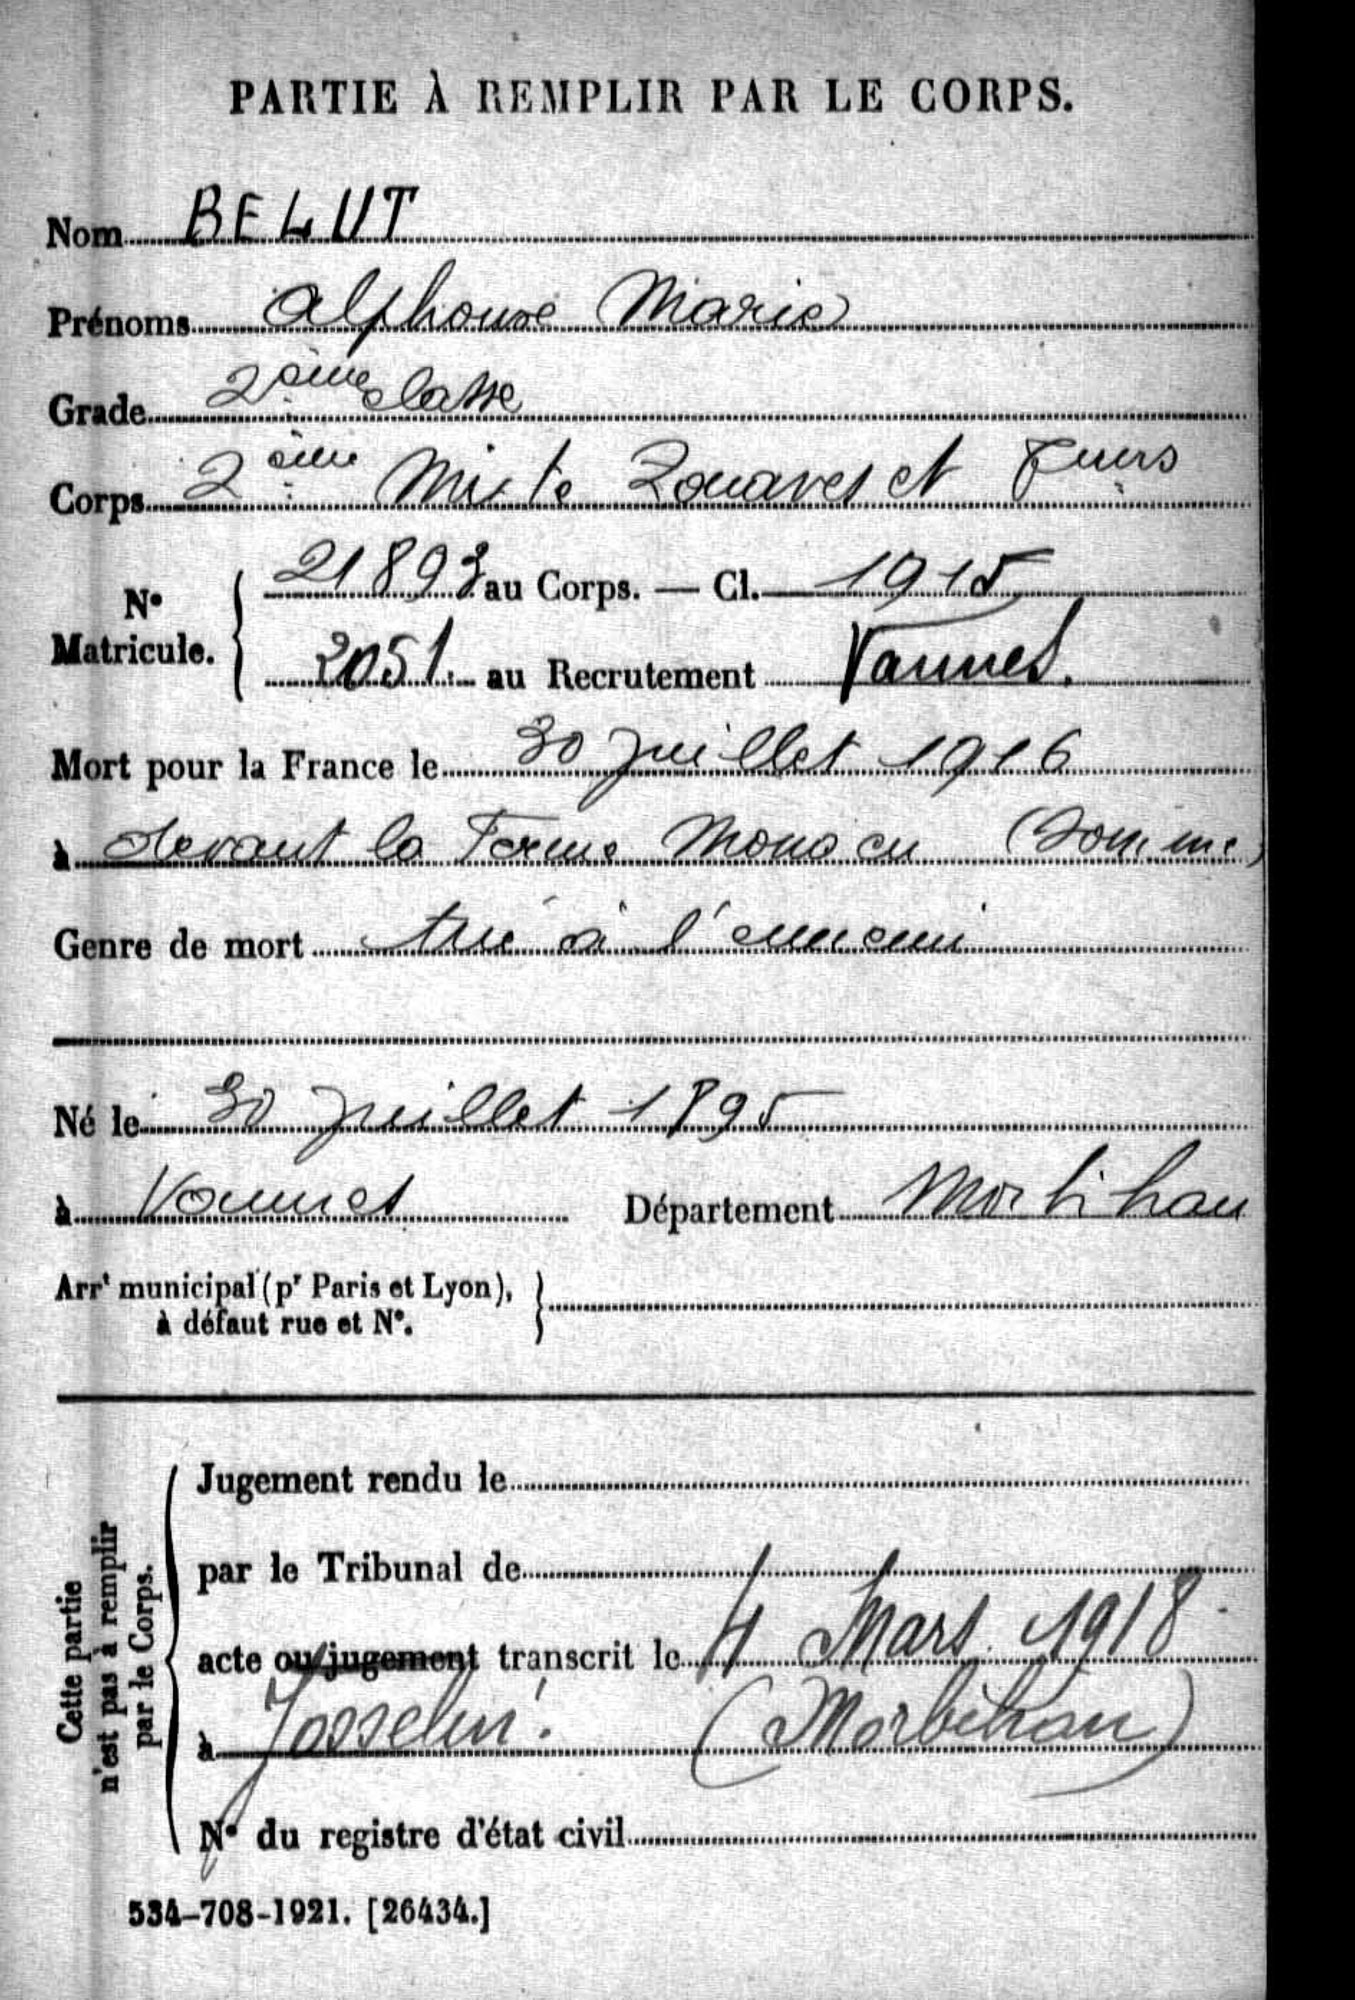 PARTIE À REMPLIR PAR LE CORPS.
Nom BELUT
Prénoms Alphonse Marie
Grade 2ème classe
Corps 2ème Mixte Zouaves et
N° Matricule. 21893 au Corps. — Cl. 1915
2051. au Recrutement Vannes.
Mort pour la France le 30 juillet 1916
à devant la Ferme Monacu (Somme)
Genre de mort tué à l'ennemi
Né le 30 juillet 1895
à Vannes Département Morbihan
Arrt municipal (pr Paris et Lyon),
à défaut rue et N°.
Cette partie
n'est pas à remplir
par le Corps.
Jugement rendu le
par le Tribunal de
acte ou jugement transcrit le 4 Mars 1918
à Josselin. (Morbihan)
N° du registre d'état civil
534-708-1921. [26434.]